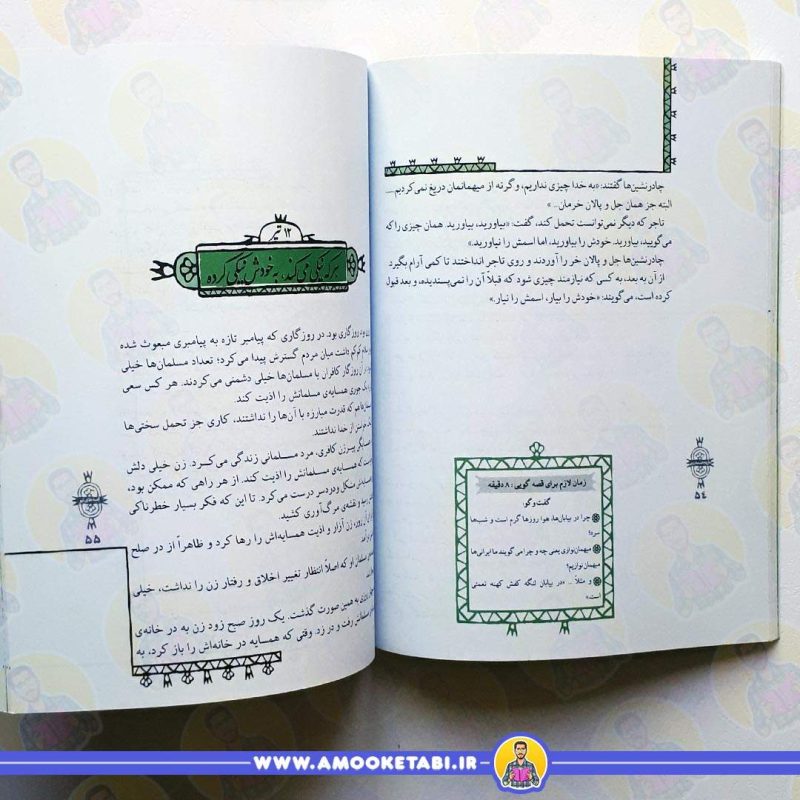 چادرنشین‌ها گفتند: «به خدا چیزی نداریم، وگرنه از میهمانمان دریغ نمی‌کردیم....
البته جز همان جل و پالان خرمان.. »
تاجر که دیگر نمی‌توانست تحمل کند، گفت: «بیاورید، بیاورید. همان چیزی را که
می‌گویید، بیاورید. خودش را بیاورید، اما اسمش را نیاورید.»
چادرنشین‌ها جل و پالان خر را آوردند و روی تاجر انداختند تا کمی آرام بگیرد.
از آن به بعد، به کسی که نیازمند چیزی شود که قبلاً آن را نمی‌پسندیده، و بعد قبول
کرده است، می‌گویند: «خودش را بیار، اسمش را نیار.»
زمان لازم برای قصه گویی: ۸ دقیقه
گفت‌وگو
چرا در بیابان‌ها، هوا روزها گرم است و شب‌ها
سرد؟
میهمان‌نوازی یعنی چه و چرا می‌گویند ما ایرانی‌ها
میهمان نوازیم؟
و مثلاً ... «در بیابان لنگه کفش کهنه نعمتی
است.»
۵۴
۱۲ تیر
هر که نیکی می‌کند، به خودش نیکی کرده
روزگاری بود. در روزگاری که پیامبر تازه به پیامبری مبعوث شده
کم‌کم داشت میان مردم گسترش پیدا می‌کرد؛ تعداد مسلمان‌ها خیلی
در آن روزگار کافران با مسلمان‌ها خیلی دشمنی می‌کردند. هر کس سعی
یک جوری همسایه‌ی مسلمانش را اذیت کند.
هم که قدرت مبارزه با آن‌ها را نداشتند، کاری جز تحمل سختی‌ها
از خدا نداشتند.
پیرزن کافری، مرد مسلمانی زندگی می‌کرد. زن خیلی دلش
که همسایه‌ی مسلمانش را اذیت کند. از هر راهی که ممکن بود،
مشکل و دردسر درست می‌کرد. تا این که فکر بسیار خطرناکی
و نقشه‌ی مرگ‌آوری کشید.
آن روز، زن آزار و اذیت همسایه‌اش را رها کرد و ظاهراً از در صلح
مسلمان او که اصلاً انتظار تغییر اخلاق و رفتار زن را نداشت، خیلی
به همین صورت گذشت. یک روز صبح زود زن به در خانه‌ی
مسلمانش رفت و در زد. وقتی که همسایه در خانه‌اش را باز کرد، به
۵۵
WWW.AMOOKETABI.IR